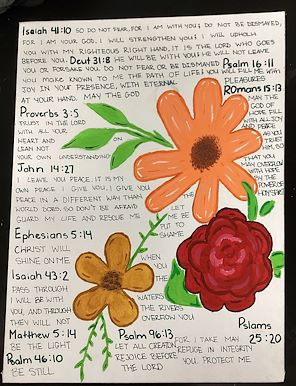 Isaiah 41:10 SO DO NOT FEAR, FOR I AM WITH YOU; DO NOT BE DISMAYED,
FOR I AM YOUR GOD. I WILL STRENGTHEN YOU & I WILL UPHOLD
YOU WITH MY RIGHTEOUS RIGHT HAND. IT IS THE LORD WHO GOES
BEFORE YOU. Deut 31:8 HE WILL BE WITH YOU; HE WILL NOT LEAVE
YOU OR FORSAKE YOU. DO NOT FEAR OR BE DISMAYED Psalm 16:11
YOU MAKE KNOWN TO ME THE PATH OF LIFE; YOU WILL FILL ME WITH
JOY IN YOUR PRESENCE, WITH ETERNAL PLEASURES
AT YOUR HAND. MAY THE GOD Romans 15:13
MAY THE
GOD OF
HOPE FILL
WITH ALL JOY
AND PEACE
AS YOU
TRUST
HIM, SO
THAT YOU
MAY OVERFLOW
WITH HOPE
BY THE
POWER OF
HOLY SPIRIT
Proverbs 3:5
TRUST IN THE LORD
WITH ALL YOUR
HEART AND
LEAN NOT ON
YOUR OWN UNDERSTANDING
John 14:27
I LEAVE YOU PEACE. IT IS MY
OWN PEACE I GIVE YOU. I GIVE YOU
PEACE IN A DIFFERENT WAY THAN THE
WORLD DOES. SO DON'T BE AFRAID
GUARD MY LIFE AND RESCUE ME
LET
ME BE
PUT TO
SHAME
Ephesians 5:14
CHRIST WILL
SHINE ON ME
Isaiah 43:2 WHEN
YOU
PASS THROUGH THE
I WILL BE WATERS
WITH YOU, AND THROUGH THE RIVERS
THEY WILL NOT OVERFLOW YOU
Matthew 5:14
BE THE LIGHT
Psalm 46:10
BE STILL
Psalm 96:13
LET ALL CREATION
REJOICE BEFORE
THE LORD
Pslams
25:20
FOR I TAKE
REFUGE IN
MAY
INTEGRITY
YOU PROTECT ME